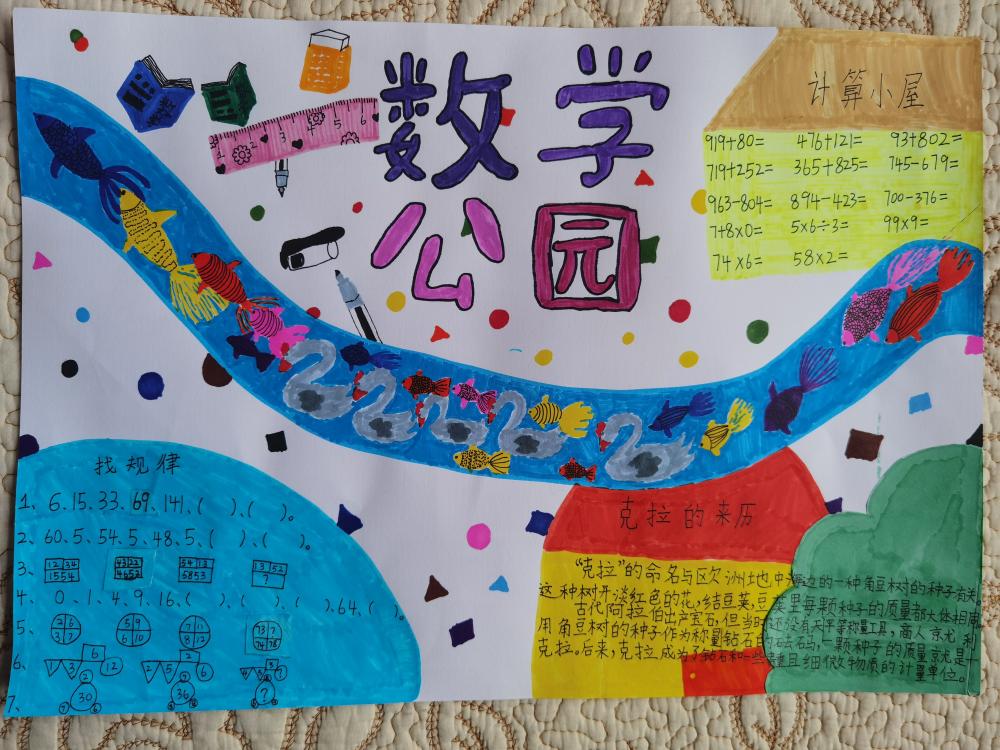 数学
公园
1 2 3 4 5 6
计算小屋
919+80= 476+121= 93+802=
719+252= 365+825= 745-679=
963-804= 894-423= 700-376=
7+8×0= 5×6÷3= 99×9=
74×6= 58×2=
找规律
1、6、15、33、69、141、( )、( )。
2、60、5、54、5、48、5、( )、( )。
3、 12 34 1554 43 22 4653 54 13 5853 13 52 ?
4、0、1、4、9、16、( )、( )、( )、64、( )、
5、 2 6 3 7 5 9 6 10 7 11 8 12 73 ? 74 78
6、 1 3 6 2 12 2 5 2 6
7、 30 36 ?
克拉的来历
“克拉”的命名与欧洲地中海边的一种角豆树的种子有关
这种树开淡红色的花,结豆荚,豆荚里每颗种子的质量都大体相同
古代阿拉伯出产宝石,但当时还没有天平等称量工具,商人就利
用角豆树的种子作为称量钻石的砝码,一颗种子的质量就是一
克拉。后来,克拉成为了钻石和一些贵重且细微物质的计量单位。